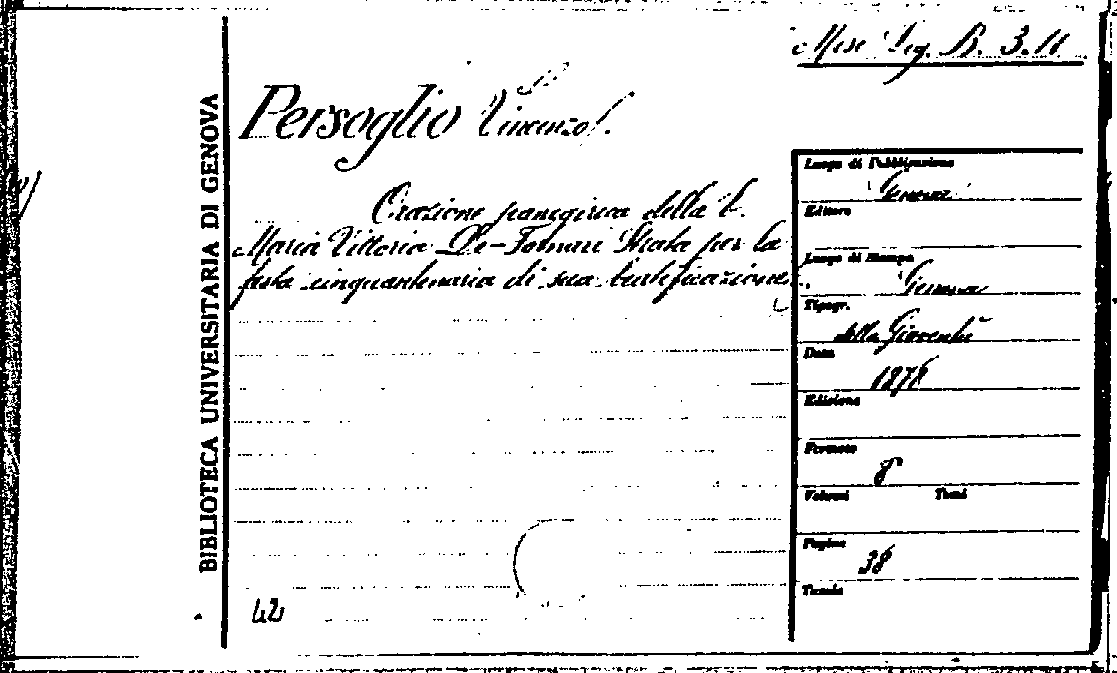 Misc. Lig. B. 3. 11
BIBLIOTECA UNIVERSITARIA DI GENOVA
Persoglio Vincenzo.
Orazione panegirica della b.
Maria Vittoria De-Fornari Strata per la
festa cinquantenaria di sua beatificazione.
Luogo di Pubblicazione
Genova
Editore
Luogo di Stampa
Genova
Tipogr.
della Gioventù
Data
1878
Edizione
Formato
8°
Volumi Tomi
Pagine
38
Tavole